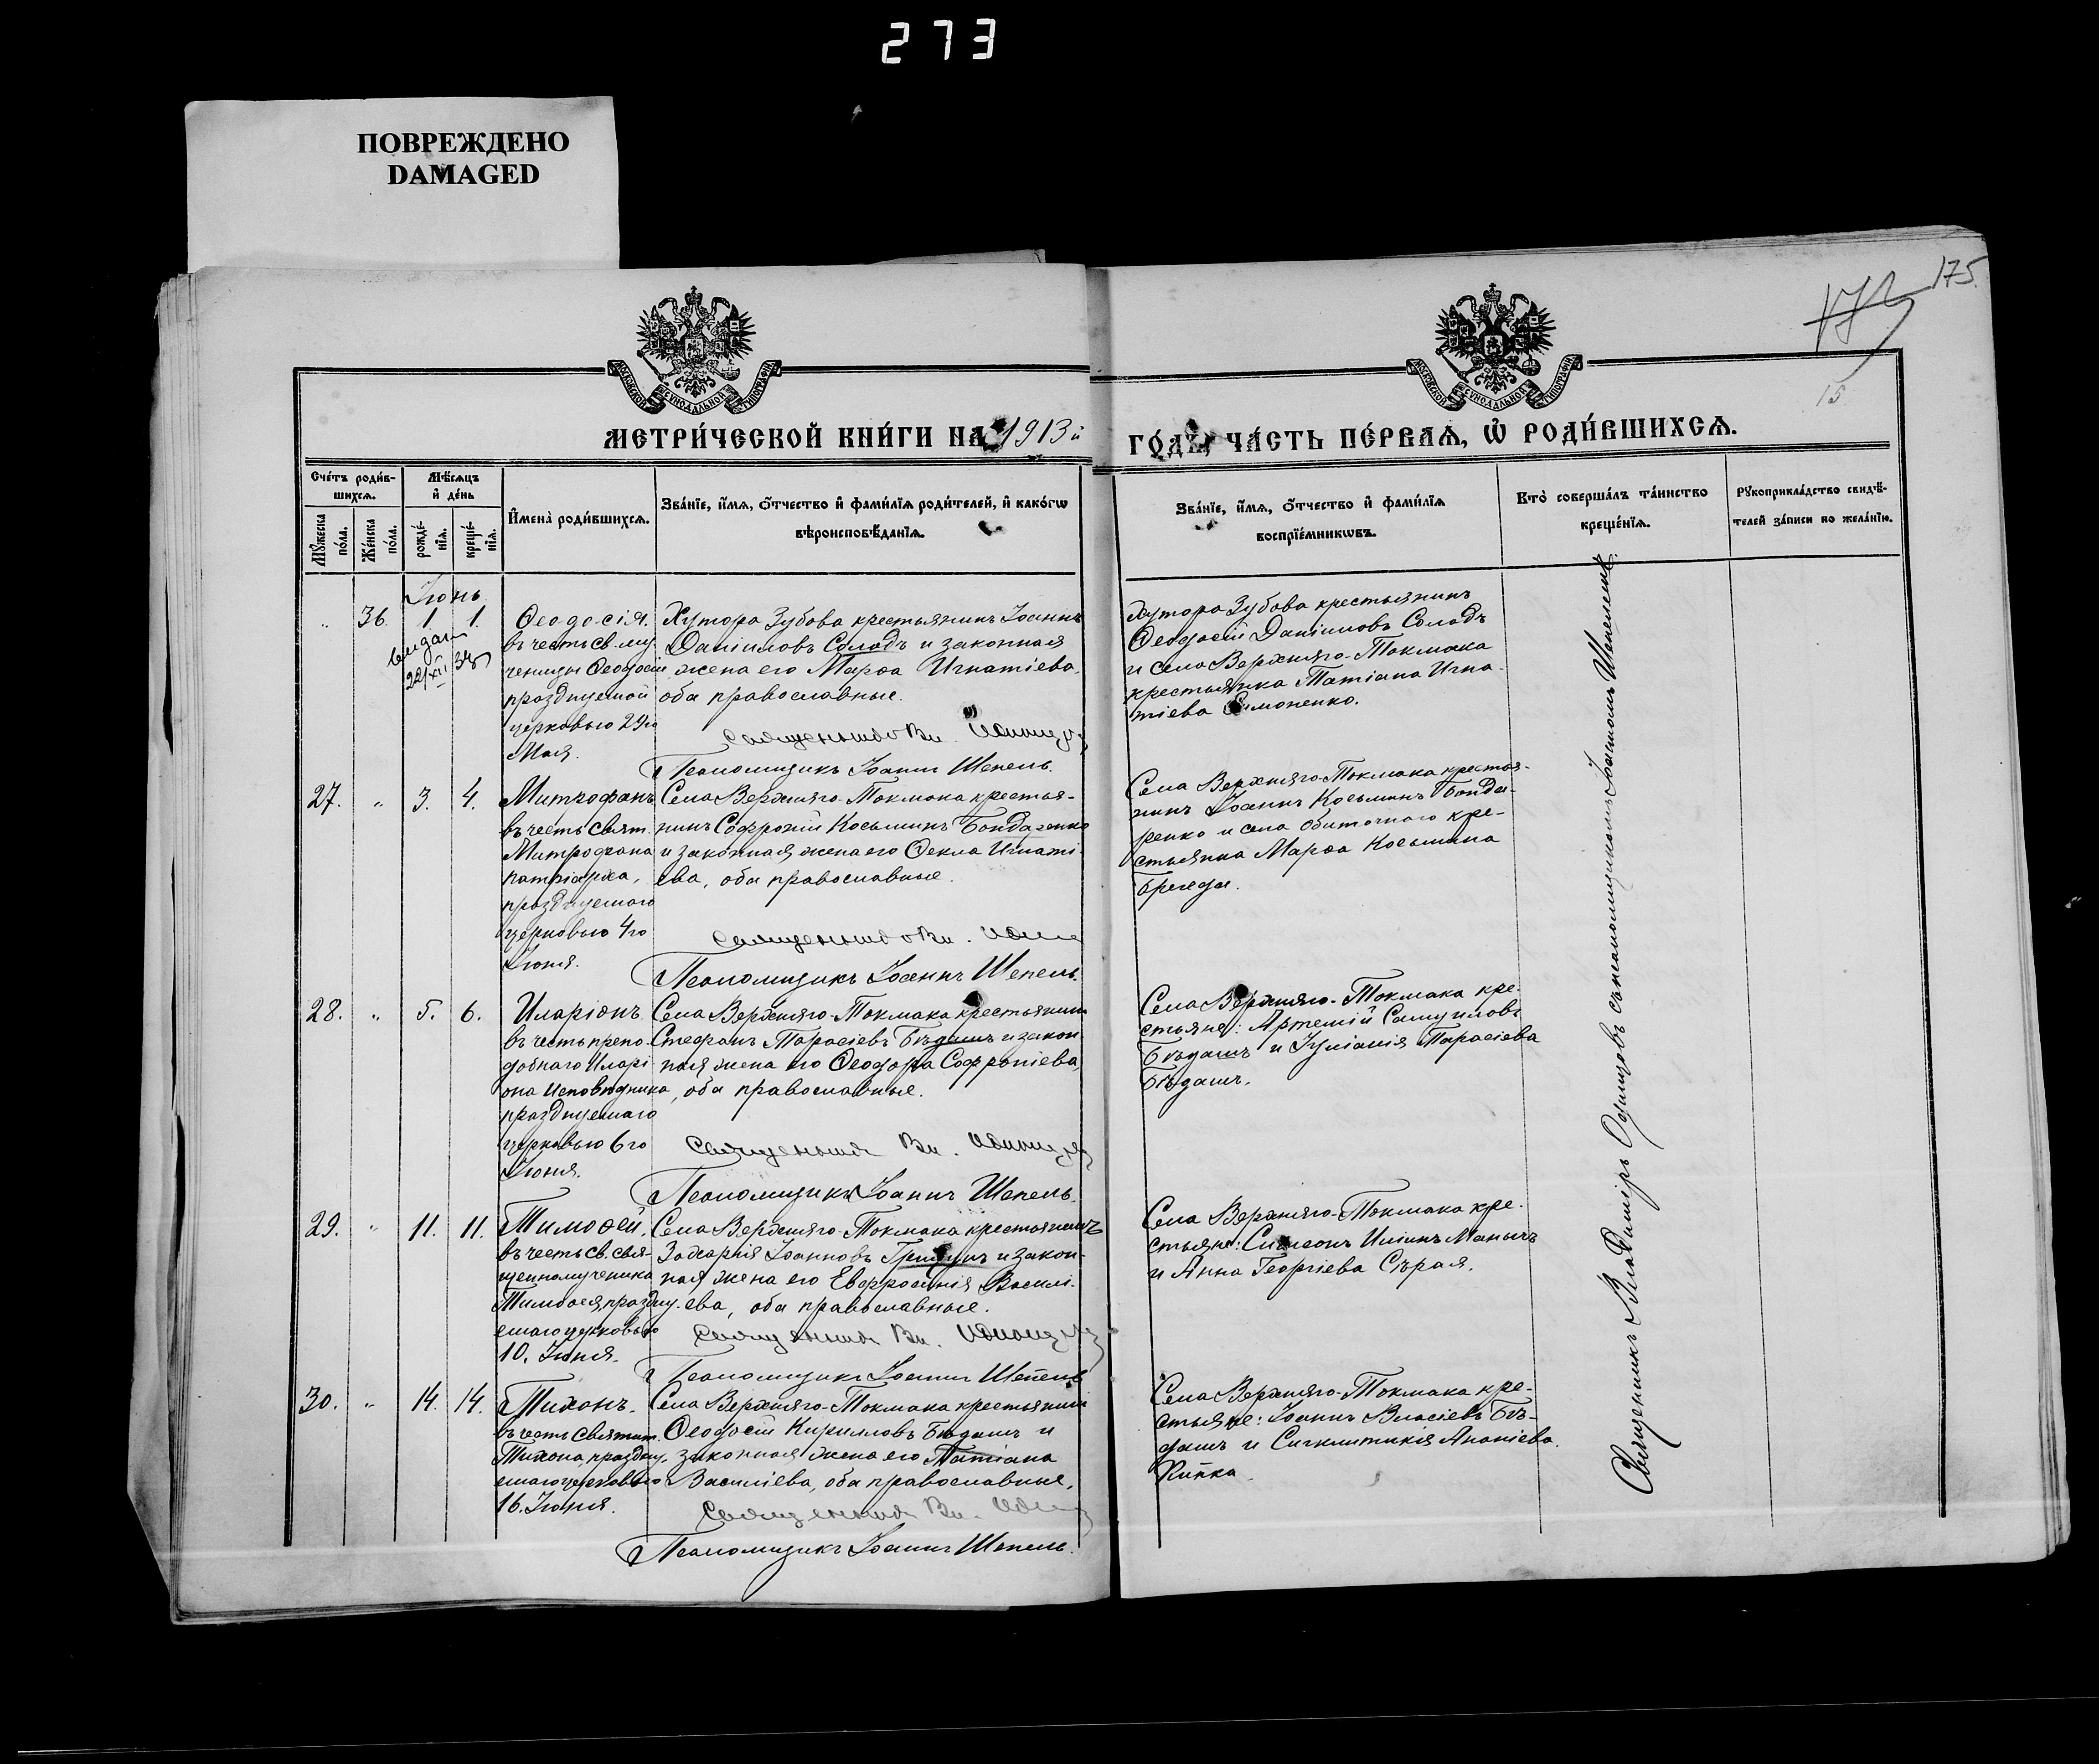 273
ПОВРЕЖДЕНО
DAMAGED
175.
15
МЕТРИ́ЧЕСКОЙ КНИ́ГИ НА 1913й
ГО́ДЪ, ЧА́СТЬ ПЕ́РВАЯ, Ѡ҆ РОДИ́ВШИХСЯ.
Сче́тъ роди́в-
шихся.
Мѣ́сяцъ
и҆ де́нь
Му́жеска
по́ла.
Же́нска
по́ла.
рожде́-
нїя.
креще́-
нїя.
И҆мена̀ роди́вшихся.
Зва́нїе, и҆́мя, ѻ҆́тчество и҆ фами́лїя роди́телей, и҆ како́гѡ
вѣроисповѣ́данїя.
Зва́нїе, и҆́мя, ѻ҆́тчество и҆ фами́лїя
воспрїе́мникѡвъ.
Кто̀ соверша́лъ та́инство
креще́нїя.
Рꙋкоприкла́дство свидѣ́-
телей за́писи по жела́нїю.
Іюнь
„ 36. 1. 1.
выдан
22/XII 34
Ѳеодосія.
въ честь св. му-
ченицы Ѳеодосіи
празднуемой
церковью 29го
Мая.
Хутора Зубова крестьянинъ Іоаннъ
Даніиловъ Солодъ и законная
жена его Марѳа Игнатіева,
оба православные.
Псаломщикъ Іоаннъ Шепель.
Хутора Зубова крестьянинъ
Ѳеодосій Даніиловъ Солодъ
и села Верхняго-Токмака
крестьянка Татіана Игна-
тіева Симоненко.
27. „ 3. 4.
Митрофанъ
въ честь свят.
Митрофана
патріарха,
празднуемаго
церковью 4го
Іюня.
Села Верхняго-Токмака крестья-
нинъ Софроній Косьминъ Бондаренко
и законная жена его Ѳекла Игнаті-
ева, оба православные.
Псаломщикъ Іоаннъ Шепель.
Села Верхняго-Токмака крестья-
нинъ Іоаннъ Косьминъ Бонда-
ренко и села Обиточнаго кре-
стьянка Марѳа Косьмина
28. „ 5. 6.
Иларіонъ
въ честь препо-
добнаго Иларі-
она Исповѣдника,
празднуемаго
церковью 6го
Іюня.
Села Верхняго-Токмака крестьянинъ
Стефанъ Тарасіевъ Бѣдашъ и закон-
ная жена его Ѳеодора Софроніева,
оба православные.
Псаломщикъ Іоаннъ Шепель.
Села Верхняго-Токмака кре-
стьяне: Артемій Самуиловъ
Бѣдашъ и Іуліанія Тарасіева
Бѣдашъ.
29. „ 11. 11.
Тимоѳей,
въ честь св. свя-
щенномученика
Тимоѳея, праздну-
емаго церковью
10. Іюня.
Села Верхняго-Токмака крестьянинъ
Захарія Іоанновъ и закон-
ная жена его Евфросинія Василі-
ева, оба православные.
Псаломщикъ Іоаннъ Шепель
Села Верхняго-Токмака кре-
стьяне: Симеонъ Иліинъ Манычъ
и Анна Георгіева Сѣрая.
30. „ 14. 14.
Тихонъ.
въ честь Святит.
Тихона, праздну-
емаго церковью
16. Іюня.
Села Верхняго-Токмака крестьянинъ
Ѳеодосій Кирилловъ Бѣдашъ и
законная жена его Татіана
Василіева, оба православные.
Псаломщикъ Іоаннъ Шепель.
Села Верхняго-Токмака кре-
стьяне: Іоаннъ Власіевъ Бѣ-
дашъ и Синклитикія Ананіева
Рипка.
Священникъ Владиміръ Одинцовъ съ псаломщикомъ Іоанномъ Шепелемъ.